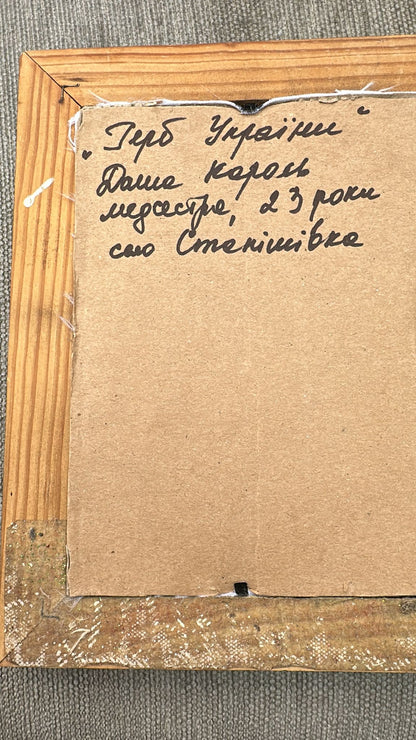 "Герб України"
Даша Король
медсестра, 23 роки
смо Станішівка